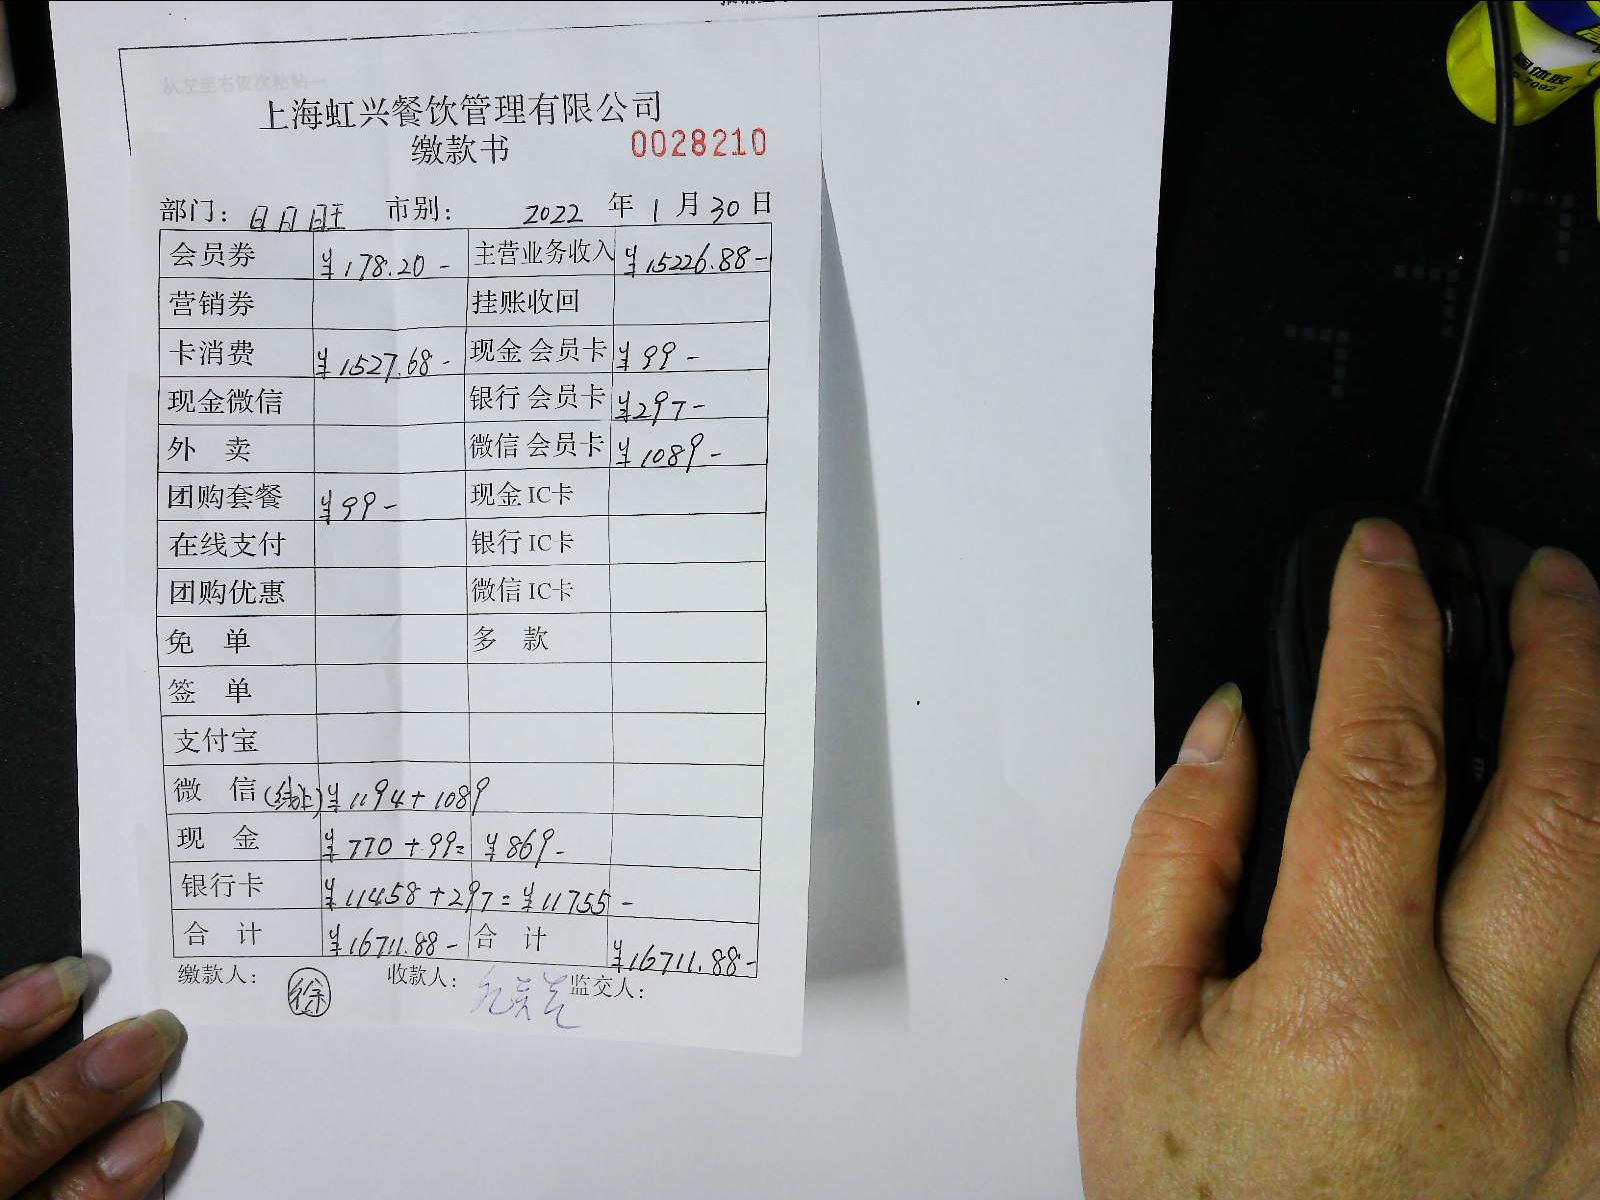 从左至右依次粘帖
上海虹兴餐饮管理有限公司
缴款书 0028210
部门: 日月旺 市别: 2022 年 1 月 30 日
会员券 ¥178.20- 主营业务收入 ¥15226.88-
营销券 挂账收回
卡消费 ¥1527.68- 现金会员卡 ¥99-
现金微信 银行会员卡 ¥297-
外 卖 微信会员卡 ¥1089-
团购套餐 ¥99- 现金IC卡
在线支付 银行IC卡
团购优惠 微信IC卡
免 单 多 款
签 单
支付宝
微 信 (线上) ¥1194+1089
现 金 ¥770+99= ¥869-
银行卡 ¥11458+297=¥11755-
合 计 ¥16711.88- 合 计 ¥16711.88-
缴款人: 徐 收款人: 监交人:
固体胶